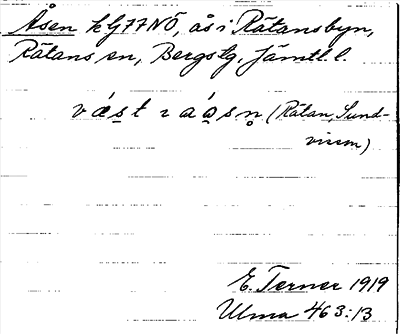 Åsen kG77NÖ, ås i Rätansbyn,
Rätans sn, Bergs tg, Jämtl. l.
vǽst ı aǻsn̥ (Rätan, Sund-
vison)
E. Terner 1919
Ulma 463:13